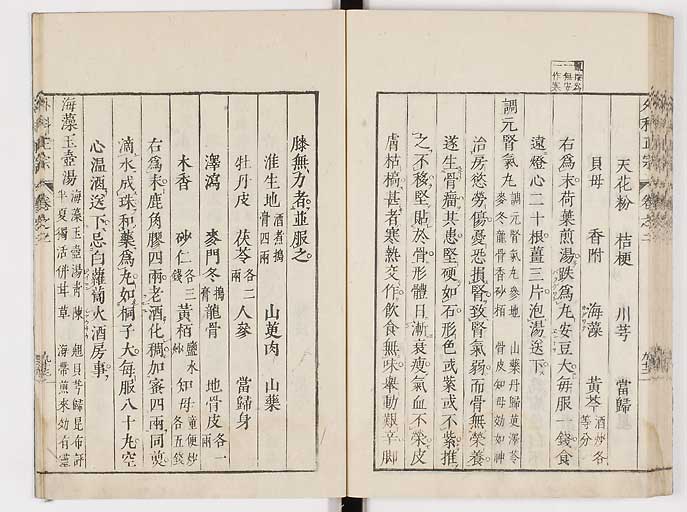 天花粉 桔梗 川芎 當歸
貝母 香附 海藻 黃芩 酒炒各等分
右爲末荷葉煎湯跌爲丸安豆大每服一錢食
遠燈心二十根薑三片泡湯送下
調元腎氣丸 調元腎氣丸參地 山藥丹歸萸澤苓 麥冬龍骨香砂栢 骨皮知母効如神
治房慾勞傷憂恐損腎致腎氣弱而骨無榮養
遂生骨瘤其患堅硬如石形色或紫或不紫推
之不移堅貼於骨形體日漸衰瘦氣血不榮皮
膚枯槁甚者寒熱交作飲食無味舉動艱辛脚
膝無力者並服之
淮生地 酒煮搗膏四兩 山萸肉 山藥
牡丹皮 茯苓 各二兩 人參 當歸身
澤瀉 麥門冬 搗膏 龍骨 地骨皮 各一兩
木香 砂仁 各三錢 黃栢 鹽水炒 知母 童便炒各五錢
右爲末鹿角膠四兩老酒化稠加蜜四兩同煎
滴水成珠和藥爲丸如桐子大每服八十丸空
心溫酒送下忌白蘿蔔火酒房事
海藻玉壺湯 海藻玉壺湯青陳 翹貝芎歸昆布評 半夏獨活併甘草 海帶煎來効有靈
外科正宗